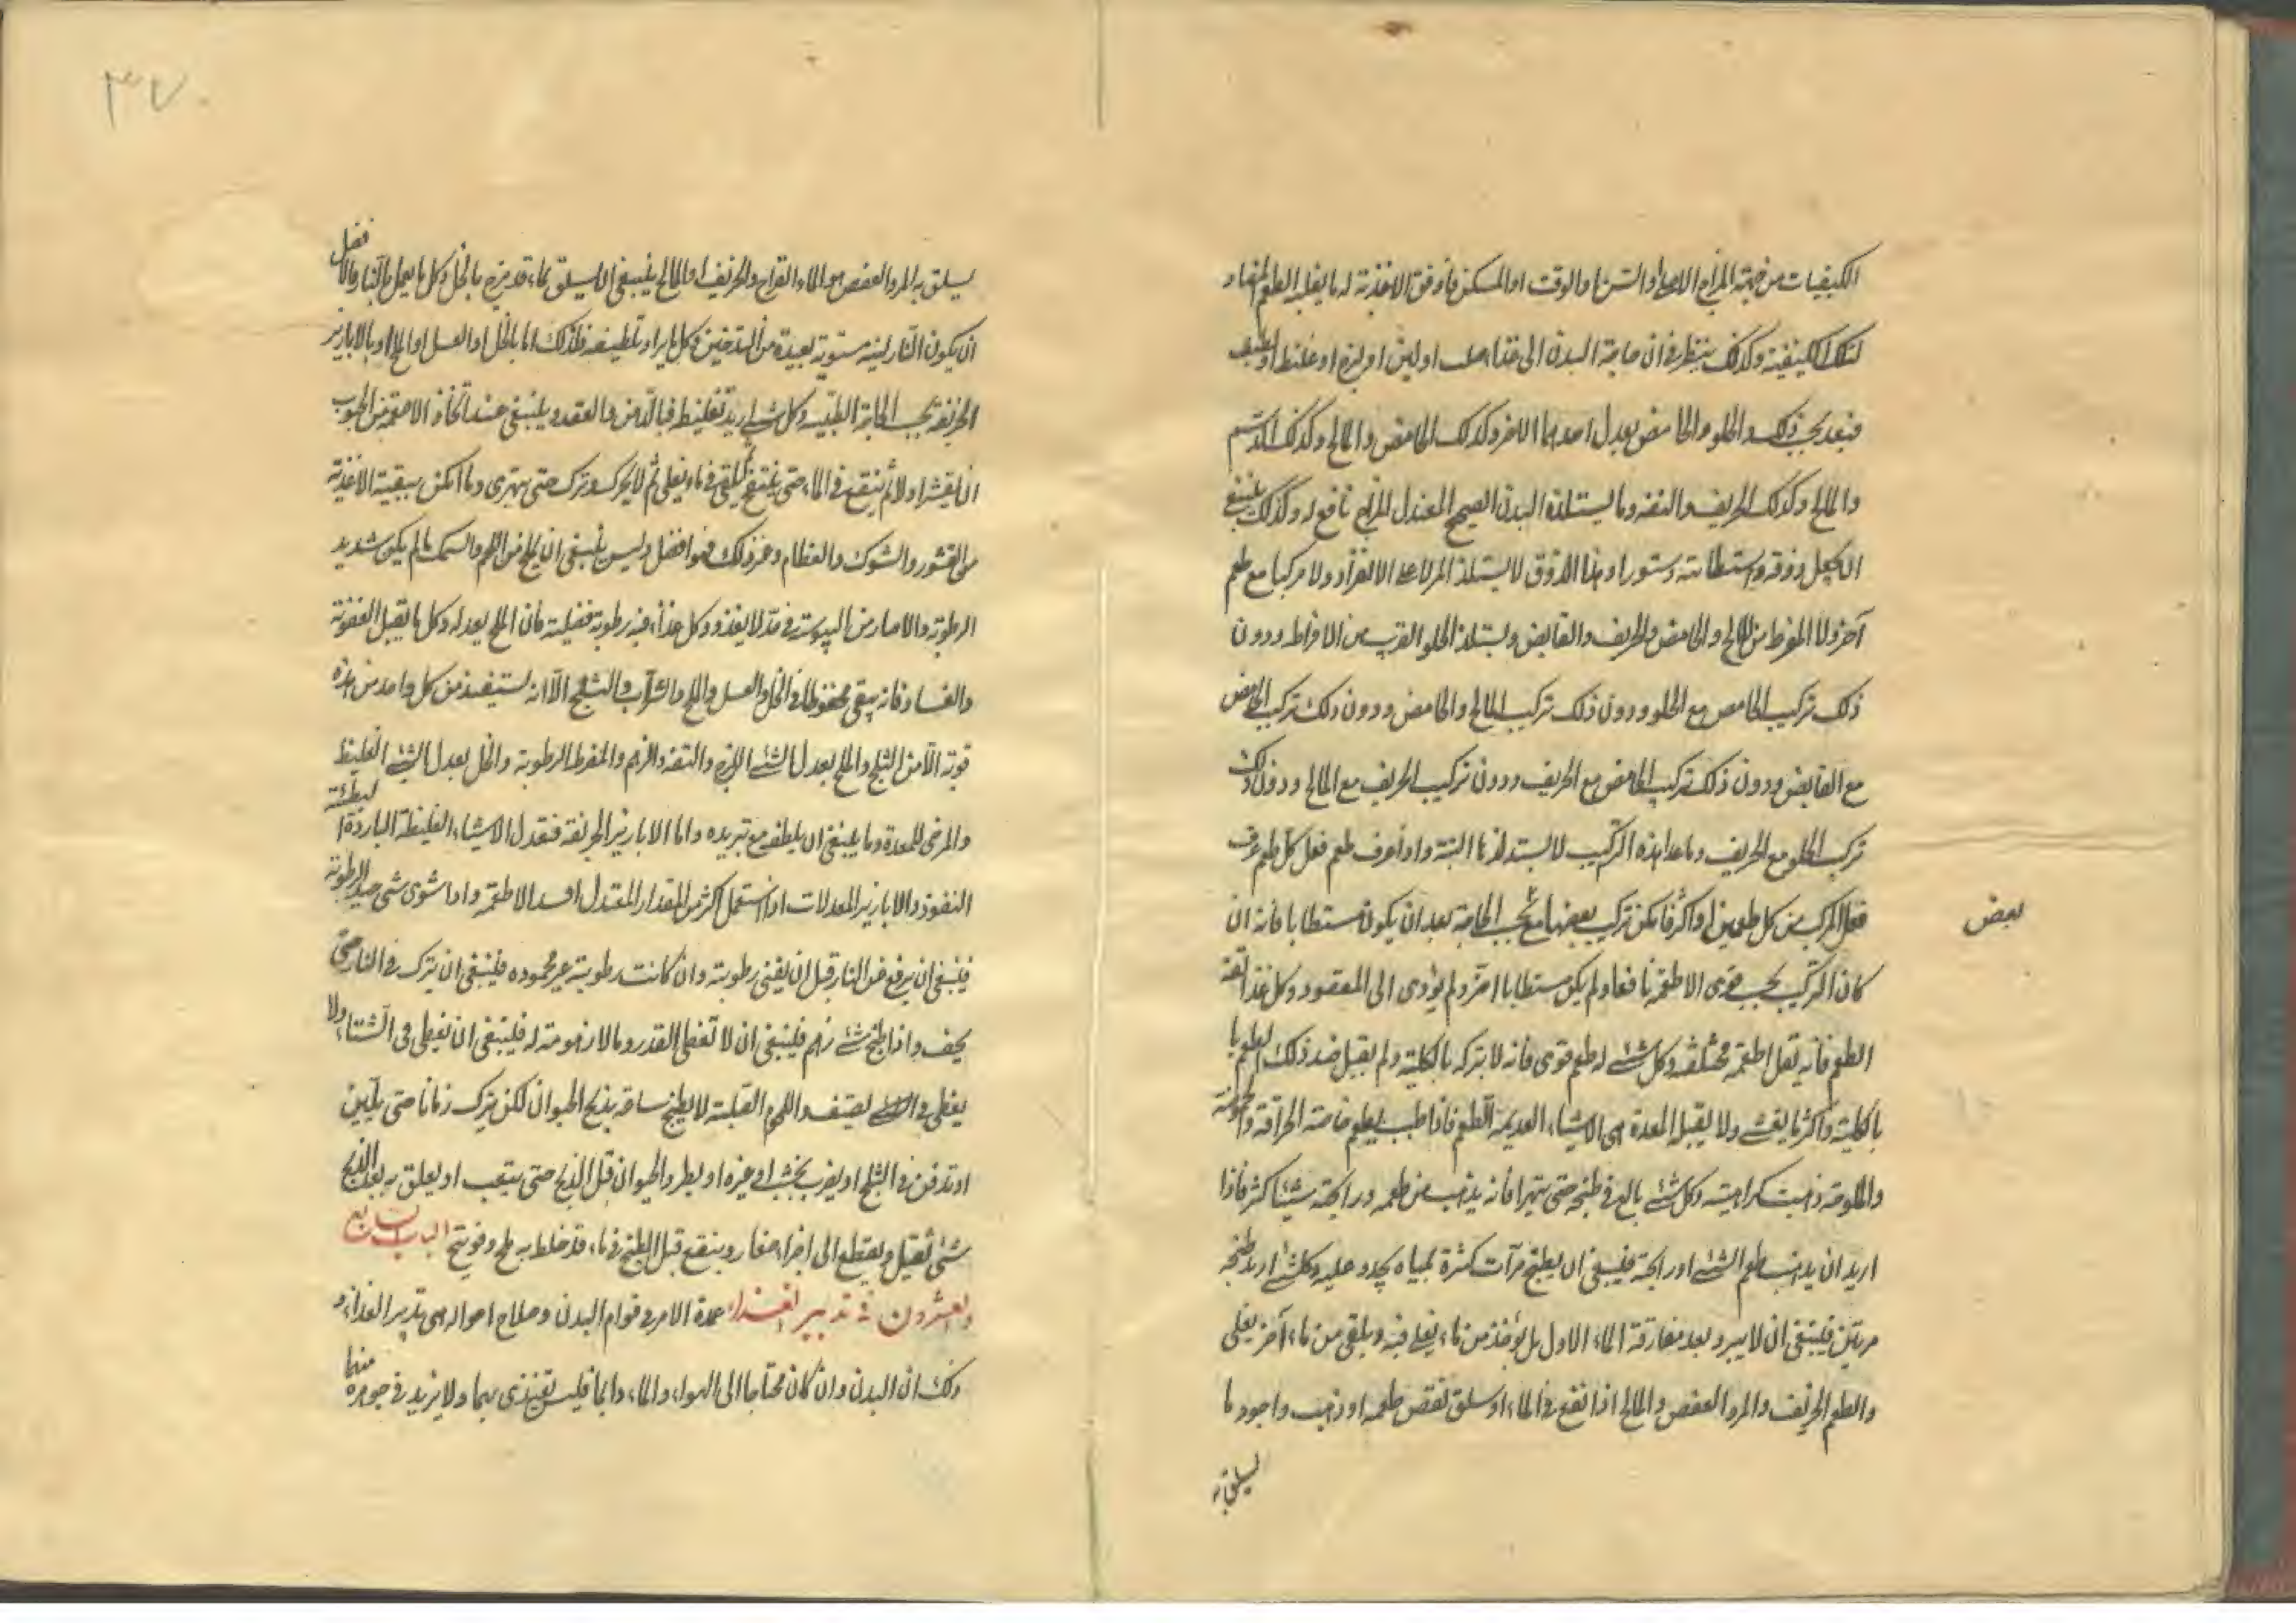 الكيفيات من جهة المزاج الاصلى او السن او الوقت او المسكن فاوفق الاغذية له ما يغلبه الطعم المضاد
لتلك الكيفية وكذلك ينظر فى ان حاجة البدن الى غذاء صلب او لين او لزج او غليظ او لطيف
فيغد بحسب ذلك والحلو والحامض يعدل احدهما الاخر وكذلك الحامض والمالح وكذلك الدسم
والمالح وكذلك الحريف والتفه وما يستلذه البدن الصحيح المعتدل المزاج نافع له وكذلك ينبغى
ان يجعل ذوقه واستطابته دستورا وهذا الذوق لا يستلذ المر لا على الانفراد ولا مركبا مع طعم
آخر ولا المفرط من المالح والحامض والحريف والقابض ويستلذ الحلو القريب من الافراط ودون
ذلك تركيب الحامض مع الحلو ودون ذلك تركيب المالح والحامض ودون ذلك تركيب الحامض
مع القابض ودون ذلك تركيب الحامض مع الحريف ودون تركيب الحريف مع المالح ودون ذلك
تركيب الحلو مع الحريف وما عدا هذه التركيب لا يستلذ البتة واذا عرف طعم فعل كل طعم عرف
فعل المركب من كل طعمين او اكثر فامكن تركيب بعضها مع بحسب الحاجة بعد ان يكون مستطابا فانه ان
بعض
كان التركيب بحسب قوى الاطعمة نافعا ولم يكن مستطابا اضر ولم يؤدى الى المقصود وكل غذا تفه
الطعم فانه يقبل اطعمة مختلفة وكل شئ له طعم قوى فانه لا يتركه بالكلية ولم يقبل ضد ذلك الطعم
بالكلية واكثر ما يقئ ولا يقبل المعدة هى الاشياء العديمة الطعم فاذا طيب بطعم خاصة الحرافة والحموضة
والملوحة ذهبت كراهيته وكل شئ بالغ فى طبخه حتى يتهرا فانه يذهب من طعمه ورائحته شيئا كثير فاذا
اريد ان يذهب طعم الشئ او رائحة فينبغى ان يطبخ مرات كثرة بمياه يجدد عليه وكل شئ اريد طبخه
مرتين فينبغى ان لا يبرد بعد مفارقة الماء الاول بل يؤخذ من ماء يغلى فيه ويلقى من ماء آخر يغلى
والطعم الحريف والمر والعفص والمالح اذا نقع فى الماء او سلق نقص طعمه او ذهب واجود ما
يسلق به
٣٧
يسلق به المر والعفص هو الماء القراح والحريف والمالح ينبغى ان يسلق بماء قد مزج بالخل وكل ما يعمل بالنار فالافضل
ان يكون النار لينة مستوية بعيدة من التدخين وكل ما يراد تلطيفه فلذلك اما بالخل او العسل او الملح او بالابازير
الحريفة بحسب الحاجة الطبية وكل شئ اريد تغليظه فبالدهن والعقد وينبغى عند اتخاذ الاطعمة من الحبوب
ان يقشر اولا ثم ينقع فى الماء حتى ينتفخ ثم يلقى فى ماء يغلى ثم لا يحرك ويترك حتى يتهرى وما امكن تنقية الاغذية
من القشور والشوك والعظام وغير ذلك فهو افضل وليس ينبغى ان يملح من اللحم والسمك ما لم يكن شديد
الرطوبة والا صار من اليبوسة فى حد لا يغذو وكل غذاء فيه رطوبة فضلية فان الملح يعدله وكل ما يقبل العفونة
والفساد فانه يبقى محفوظا فى الخل والعسل والملح والشراب والثلج الا انه يستفيد من كل واحد من هذه
قوته الا من الثلج والملح يعدل الشئ اللزج والتفه والزهم والمفرط الرطوبة والخل يعدل الشئ الغليظ
والمرخى للمعدة وما ينبغى ان يلطف مع تبريده واما الابازير الحريفة فتعدل الاشياء الغليظة الباردة البطيئة
النفوذ والابازير المعدلات اذا استعمل اكثر من المقدار المعتدل افسد الاطعمة واذا شوى شئ جيد الرطوبة
فينبغى ان يرفع عن النار قبل ان يفنى رطوبته وان كانت رطوبته غير محموده فينبغى ان يترك فى النار حتى
يجف واذا طبخ شئ زهم فينبغى ان لا تغطى القدر وما لا زهومة له فلينبغى ان يغطى فى الشتاء ولا
يغطى فى الصيف واللحوم الصلبة لا يطبخ ساعة يذبح الحيوان لكن يترك زمانا حتى يلين
او تدفن فى الثلج او يضرب بخشب او غيره او يطرد الحيوان قبل الذبح حتى يتعب او يعلق به بعد الذبح
شئ ثقيل ويقطع الى اجزاء صغار وينقع قبل الطبخ فى ماء قد خلط به ملح وفوتنج الباب السابع
والعشرون فى تدبير الغذاء عمدة الامر فى قوام البدن وصلاح احواله هى تدبير الغذاء و
ذلك ان البدن وان كان محتاجا الى الهواء والماء دائما فليس يغتذى بهما ولا يزيد فى جوهره منهما